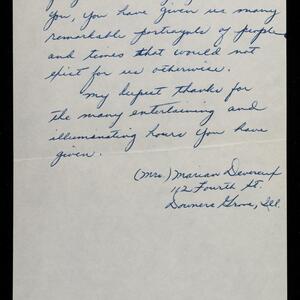 You, you have given us many
remarkable portrayals of people
and times that would not
exist for us otherwise.
My deepest thanks for
the many entertaining and
illuminating hours you have
given.
(Mrs.) Marian Devereux
112 Fourth St.
Downers Grove, Ill.